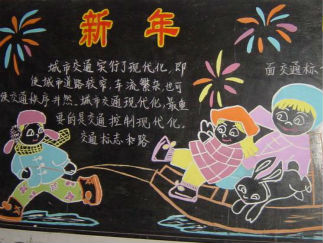 新年
城市交通实行了现代化,即
使城市道路较窄,车流繁杂,也可
使交通秩序井然。城市交通现代化,最重
要的是交通控制现代化,
交通标志和路
面交通标